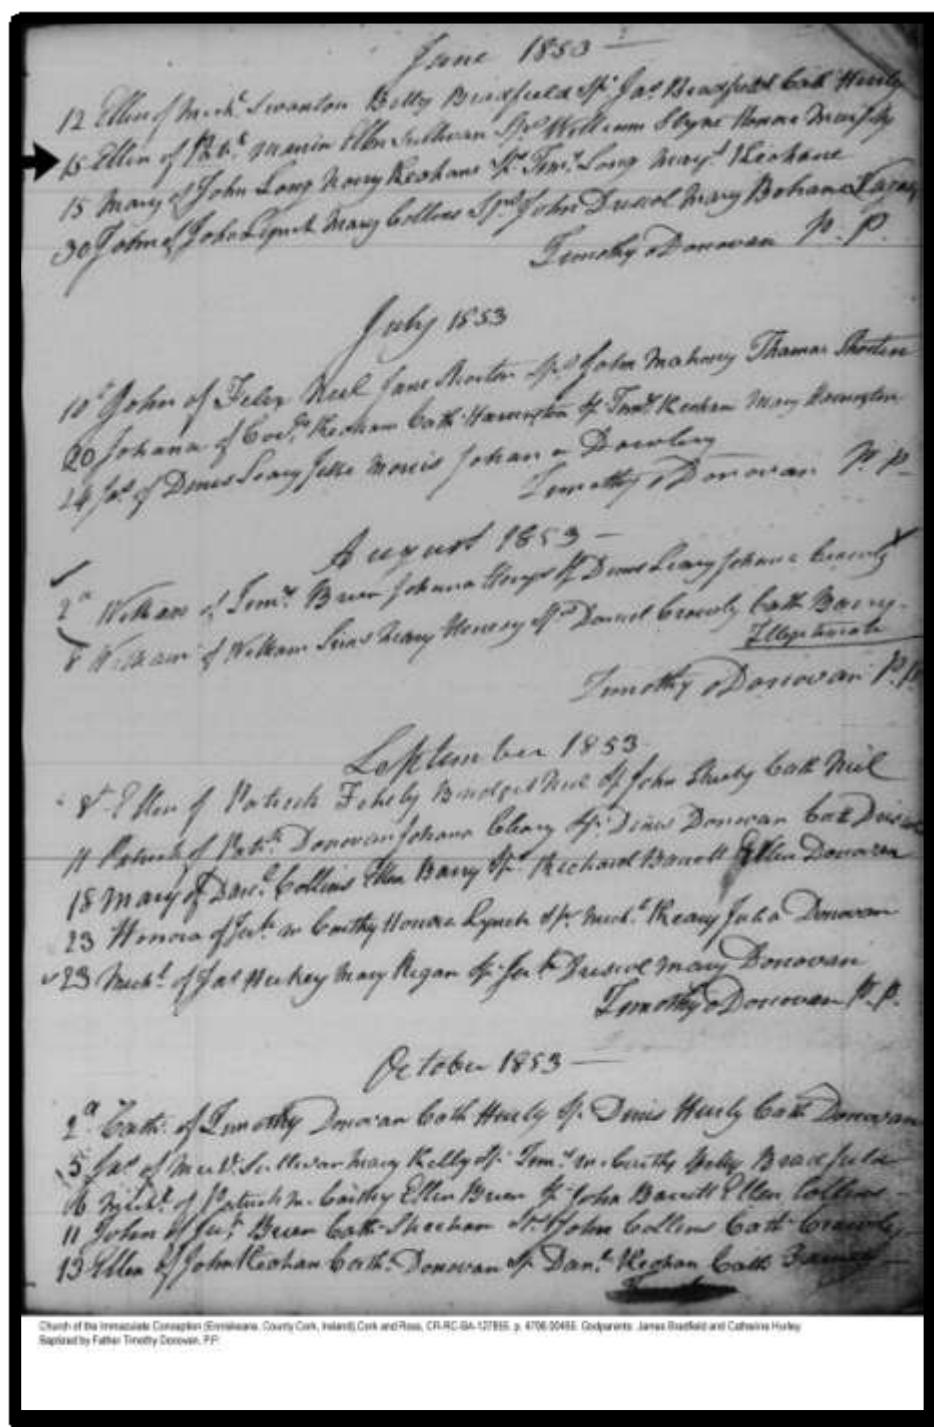 June 1853
12 Ellen of Mich.l Swanton Betty Bradfield Sp.r Ja.s Bradfield Cath Hurly
15 Ellen of Pat.k Ellen Sullivan Sp.rs William Slyne Honora Murphy
15 Mary of John Long Mary Keohane Sp.r Tim.y Long Marg.t Keohane
30 John of John Lynch Mary Collins Sp.rs John Driscol Mary Bohane
Timothy oDonovan P. P.
July 1853
10 John of Felix Neil Jane Shorten Sp.s John Mahony Thomas Shorten
20 Johana of Keohane Cath Harrington Sp. Tim.y Keohan Mary Harrington
24 Ja.s of Denis Leary Morris Johana Dowling
Timothy oDonovan P. P.
August 1853
2 William of Tim.y Brien Johana Sp Denis Leary Johana Crowly
8 William of William Mary Sp.s Daniel Crowly Cath Barry
Illegitimate
Timothy oDonovan P. P.
September 1853
8 Ellen of Patrick Fehely Bridget Neil Sp John Cath Neil
11 Patrick of Pat.k Donovan Johana Cleary Sp. Denis Donovan Cath Driscol
18 Mary of Dan.l Collins Ellen Barry Sp. Richard Barrett Ellen Donovan
23 Honora of m Carthy Honora Lynch Sp. Mich.l Julia Donovan
23 Mich.l of Jas Mary Regan Sp. Driscol Mary Donovan
Timothy oDonovan P. P.
October 1853
2 Cath. of Timothy Donovan Cath Hurly Sp. Denis Hurly Cath Donovan
5 Jas of Sullivan Mary Kelly Sp. Tim.y m Carthy Bradfield
6 Mich.l of Patrick m. Carthy Ellen Brien Sp. John Barrett Ellen Collins
11 John of Brien Cath. Sheehan Sp. John Collins Cath. Crowly
13 Ellen of John Keohan Cath. Donovan Sp. Dan.l Keohan Cath
Church of the Immaculate Conception (Enniskeane, County Cork, Ireland),Cork and Ross, CR-RC-BA-127855, p. 4706.00455. Godparents: James Bradfield and Catherine Hurley
Baptized by Father Timothy Donovan, P.P.